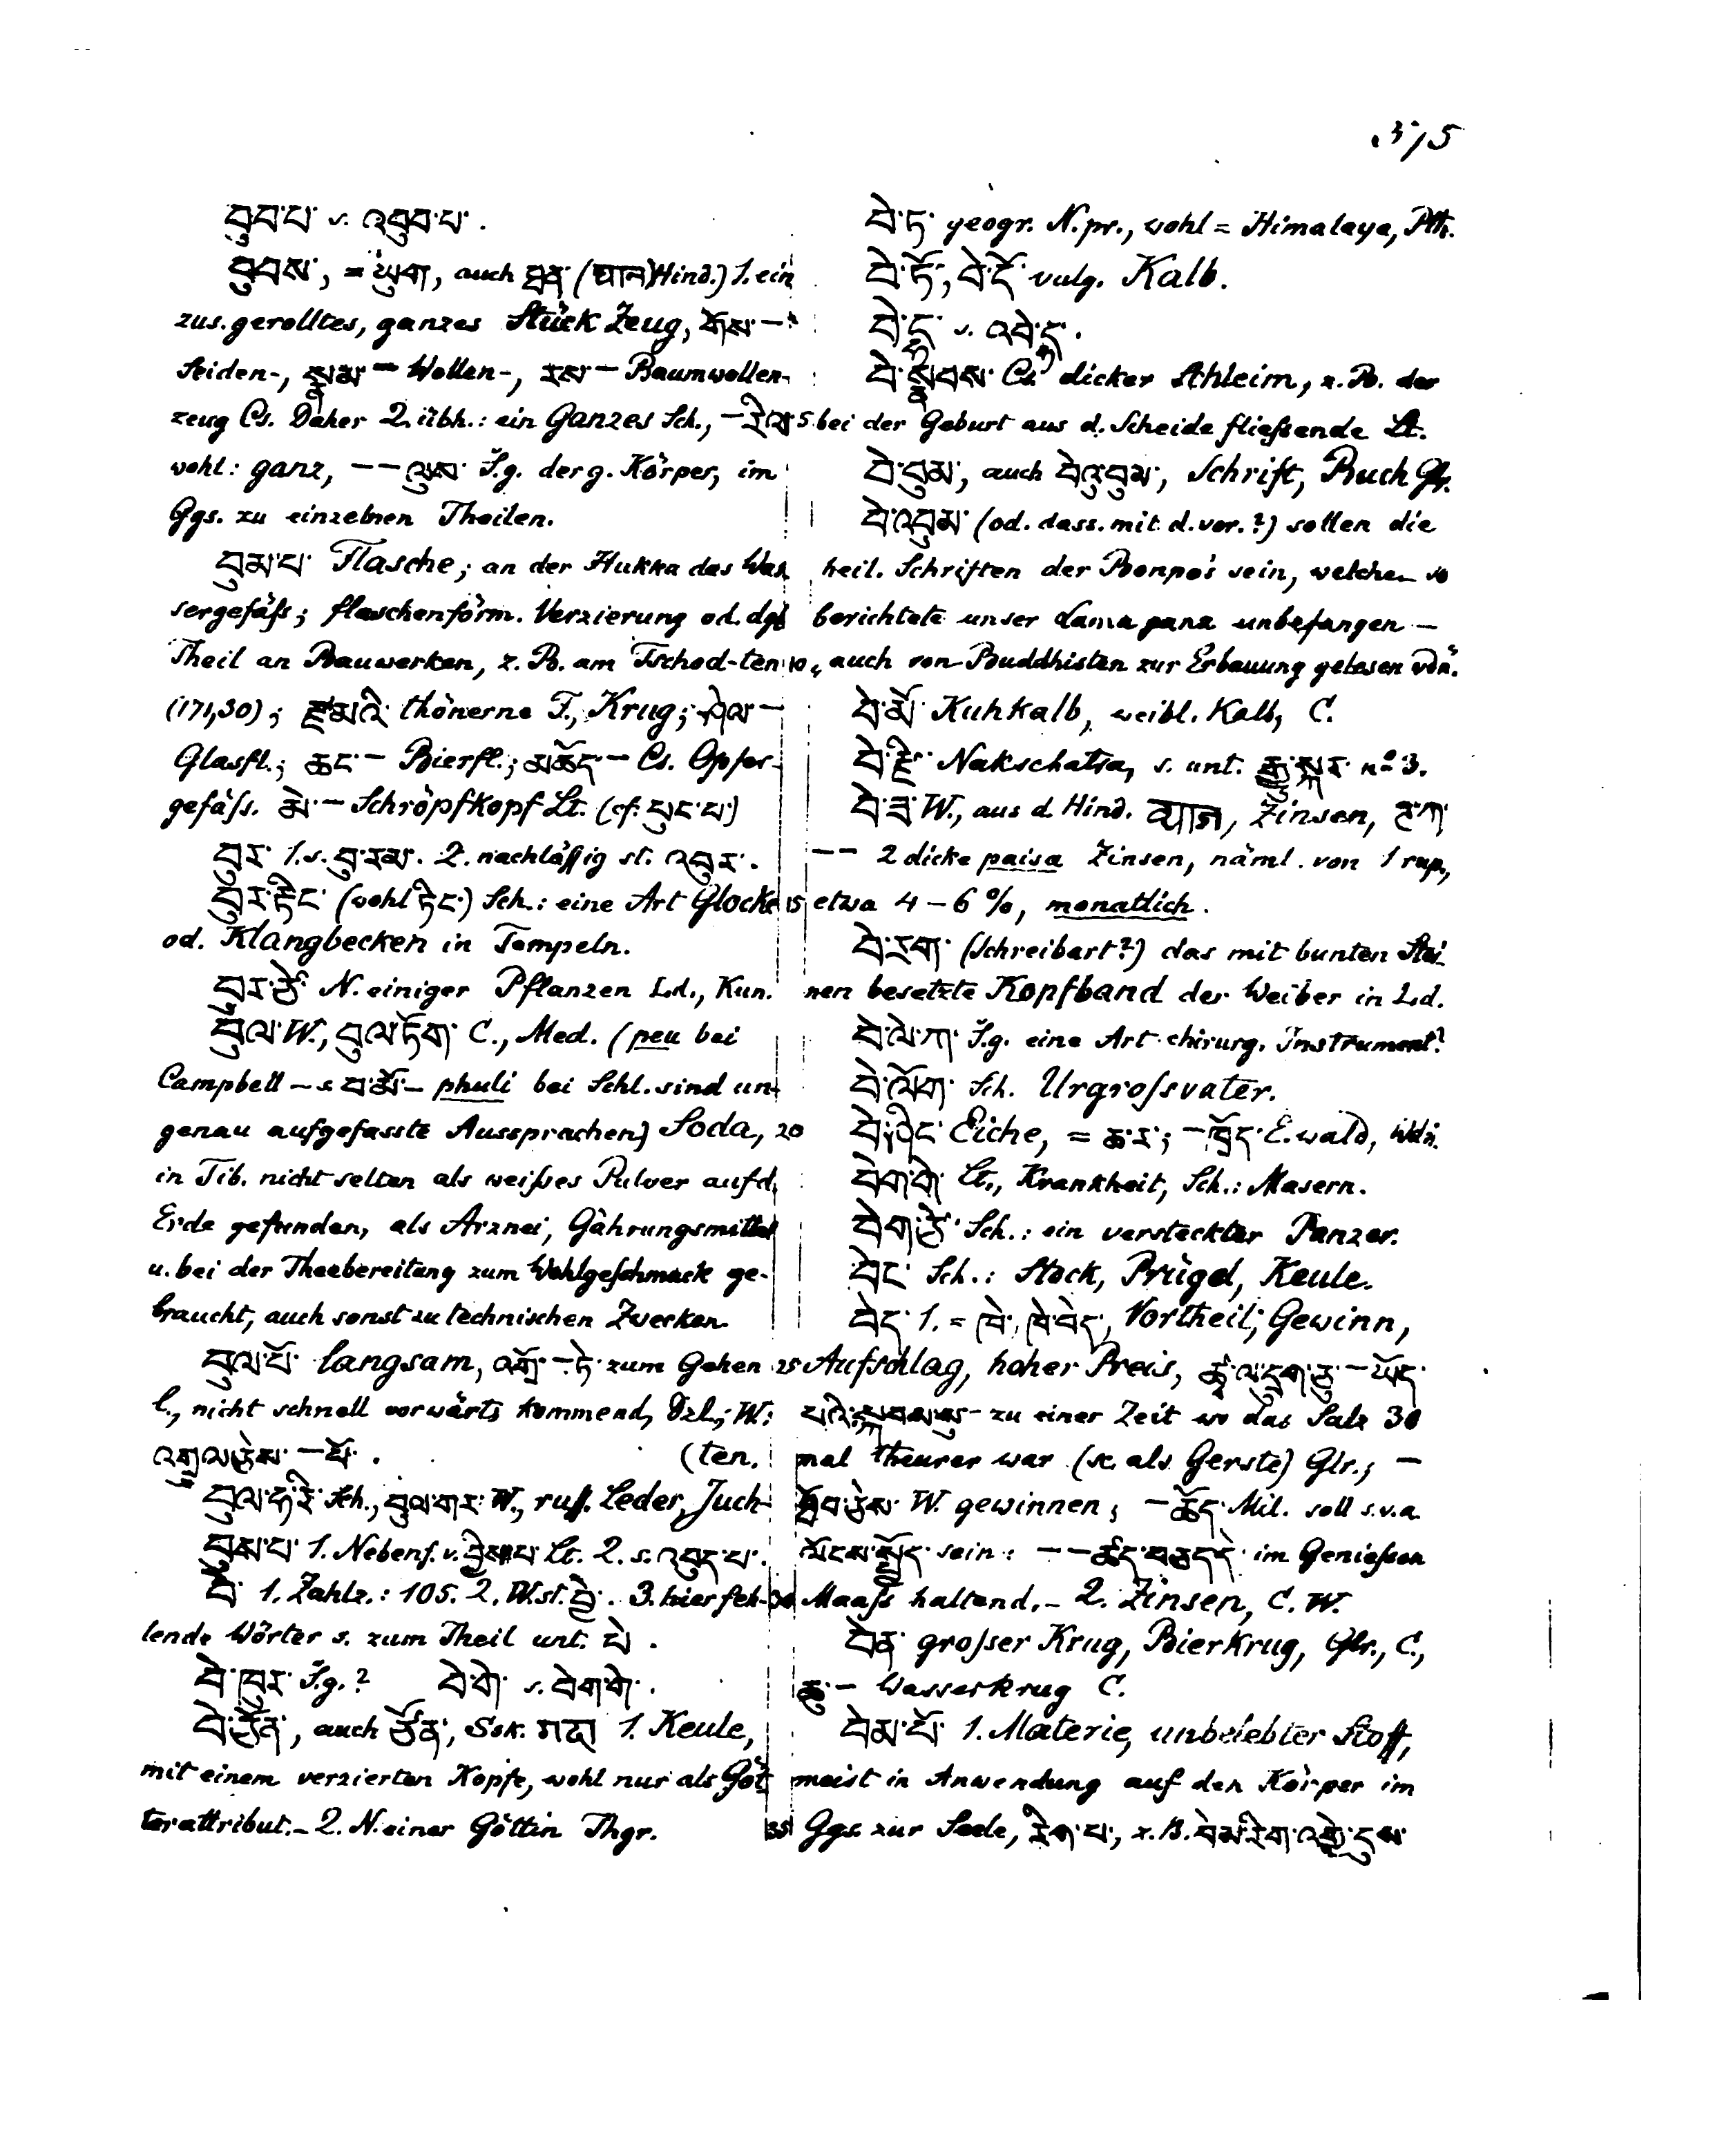 375
བུབ་པ་ s. འབུབ་པ་.
བུབས་, = ཡུག, auch ཐན་ (थान Hind.) 1. ein
zus. gerolltes, ganzes Stück Zeug, གོས་ —
Seiden-, སྣམ་ — Wollen-, རས་ — Baumwollen-
zeug Cs. Daher 2. übh.: ein Ganzes Sch., — རིལ་
wohl: ganz, — — ལུས་ S̆.g. der g. Körper, im
Ggs. zu einzelnen Theilen.
བུམ་པ་ Flasche; an der Hukka das Was-
sergefäſs; flaschenförm. Verzierung od. dgl.
Theil an Bauwerken, z. B. am Tschod-ten
(171,30); རྫ་མའི་ thönerne F., Krug; ཤེལ་ —
Glasfl.; ཆང་ — Bierfl.; མཆོད་ — Cs. Opfer-
gefäſs. མེ་ — Schröpfkopf Lt. (cf. པུང་པ་)
བུར་ 1. s. བུ་རམ་. 2. nachläſsig st. འབུར་.
བུར་རྟིང་ (wohl ཏིང་) Sch.: eine Art Glocke
od. Klangbecken in Tempeln.
བུར་ཙེ་ N. einiger Pflanzen Ld., Kun.
བུལ་ W., བུལ་ཏོག་ C., Med. (peu bei
Campbell – s. བ་ཚོ་ – phuli bei Schl. sind un-
genau aufgefasste Aussprachen) Soda,
in Tib. nicht selten als weiſses Pulver auf d.
Erde gefunden, als Arznei, Gährungsmittel
u. bei der Theebereitung zum Wohlgeschmack ge-
braucht, auch sonst zu technischen Zwecken.
བུལ་པོ་ langsam, འགྲོ་ — ཏེ་ zum Gehen
l., nicht schnell vorwärts kommend, Dzl.; W.:
འགུལ་བྱེས་ — པོ་. (ten.
བུལ་ཧ་རི་ Sch., བུལ་གར་ W., ruſs. Leder, Juch-
བུས་པ་ 1. Nebenf. v. བྱིས་པ་ Lt. 2. s. འབུད་པ་.
བེ་ 1. Zahlz.: 105. 2. W. st. བྱེ་. 3. hier feh-
lende Wörter s. zum Theil unt. པེ་.
བེ་ཁུར་ S̆.g.? བེ་གེ་ s. བེག་གེ་.
བེ་ཅོན་, auch ཅོན་, Ssk. गदा 1. Keule,
mit einem verzierten Kopfe, wohl nur als Göt-
terattribut. – 2. N. einer Göttin Thgr.
བེ་ཏ་ geogr. N. pr., wohl = Himalaya, Pth.
བེ་ཏོ་, བེ་དོ་ vulg. Kalb.
བེ་ད་ s. འབེ་ད་.
བེ་སྣབས་ Cs. dicker Schleim, z. B. der
5 bei der Geburt aus d. Scheide flieſsende Lt.
བེ་བུམ་, auch བེའུ་བུམ་, Schrift, Buch Glr.
བེ་འབུམ་ (od. dass. mit d. vor.?) sollen die
heil. Schriften der Bonpo's sein, welche – so
berichtete unser Lama ganz unbefangen –
10 auch von Buddhisten zur Erbauung gelesen wdn.
བེ་མོ་ Kuhkalb, weibl. Kalb, C.
བེ་རྫི་ Nakschatra, s. unt. རྒྱུ་སྐར་ no 3.
བེ་ཟ་ W., aus d. Hind. व्याज, Zinsen, ཊ་ཀ་
— — 2 dicke paisa Zinsen, näml. von 1 rup.,
15 etwa 4 – 6 %, monatlich.
བེ་རག་ (Schreibart?) das mit bunten Stei-
nen besetzte Kopfband der Weiber in Ld.
བེ་ལེ་ཀ་ S̆.g. eine Art chirurg. Instrument?
བེ་ལོག་ Sch. Urgroſsvater.
20 བེ་ཤིང་ Eiche, = ཆ་ར་; — ཁྲོད་ E. wald, Wdn.
བེག་གེ་ Lt., Krankheit, Sch.: Masern.
བེག་ཙེ་ Sch.: ein versteckter Panzer.
བེང་ Sch.: Stock, Prügel, Keule.
བེད་ 1. = ཁེ་, ཁེ་བེད་, Vortheil, Gewinn,
25 Aufschlag, hoher Preis, ཚྭ་ལ་དྲུག་ཅུ་ — ཡོད་
པའི་སྐབས་སུ་ – zu einer Zeit wo das Salz 30
mal theurer war (sc. als Gerste) Glr.; —
ཐོབ་བྱེས་ W. gewinnen; — ཚོད་ Mil. soll s. v. a.
ལོངས་སྤྱོད་ sein: — — ཚོད་བཟུང་དེ་ im Genieſsen
30 Maaſs haltend. – 2. Zinsen, C. W.
བེན་ groſser Krug, Bierkrug, Glr., C.,
ཆུ་ — Wasserkrug C.
བེམ་པོ་ 1. Materie, unbelebter Stoff,
meist in Anwendung auf den Körper im
35 Ggs. zur Seele, རིག་པ་, z. B. བེམ་རིག་འགྱེ་དུས་